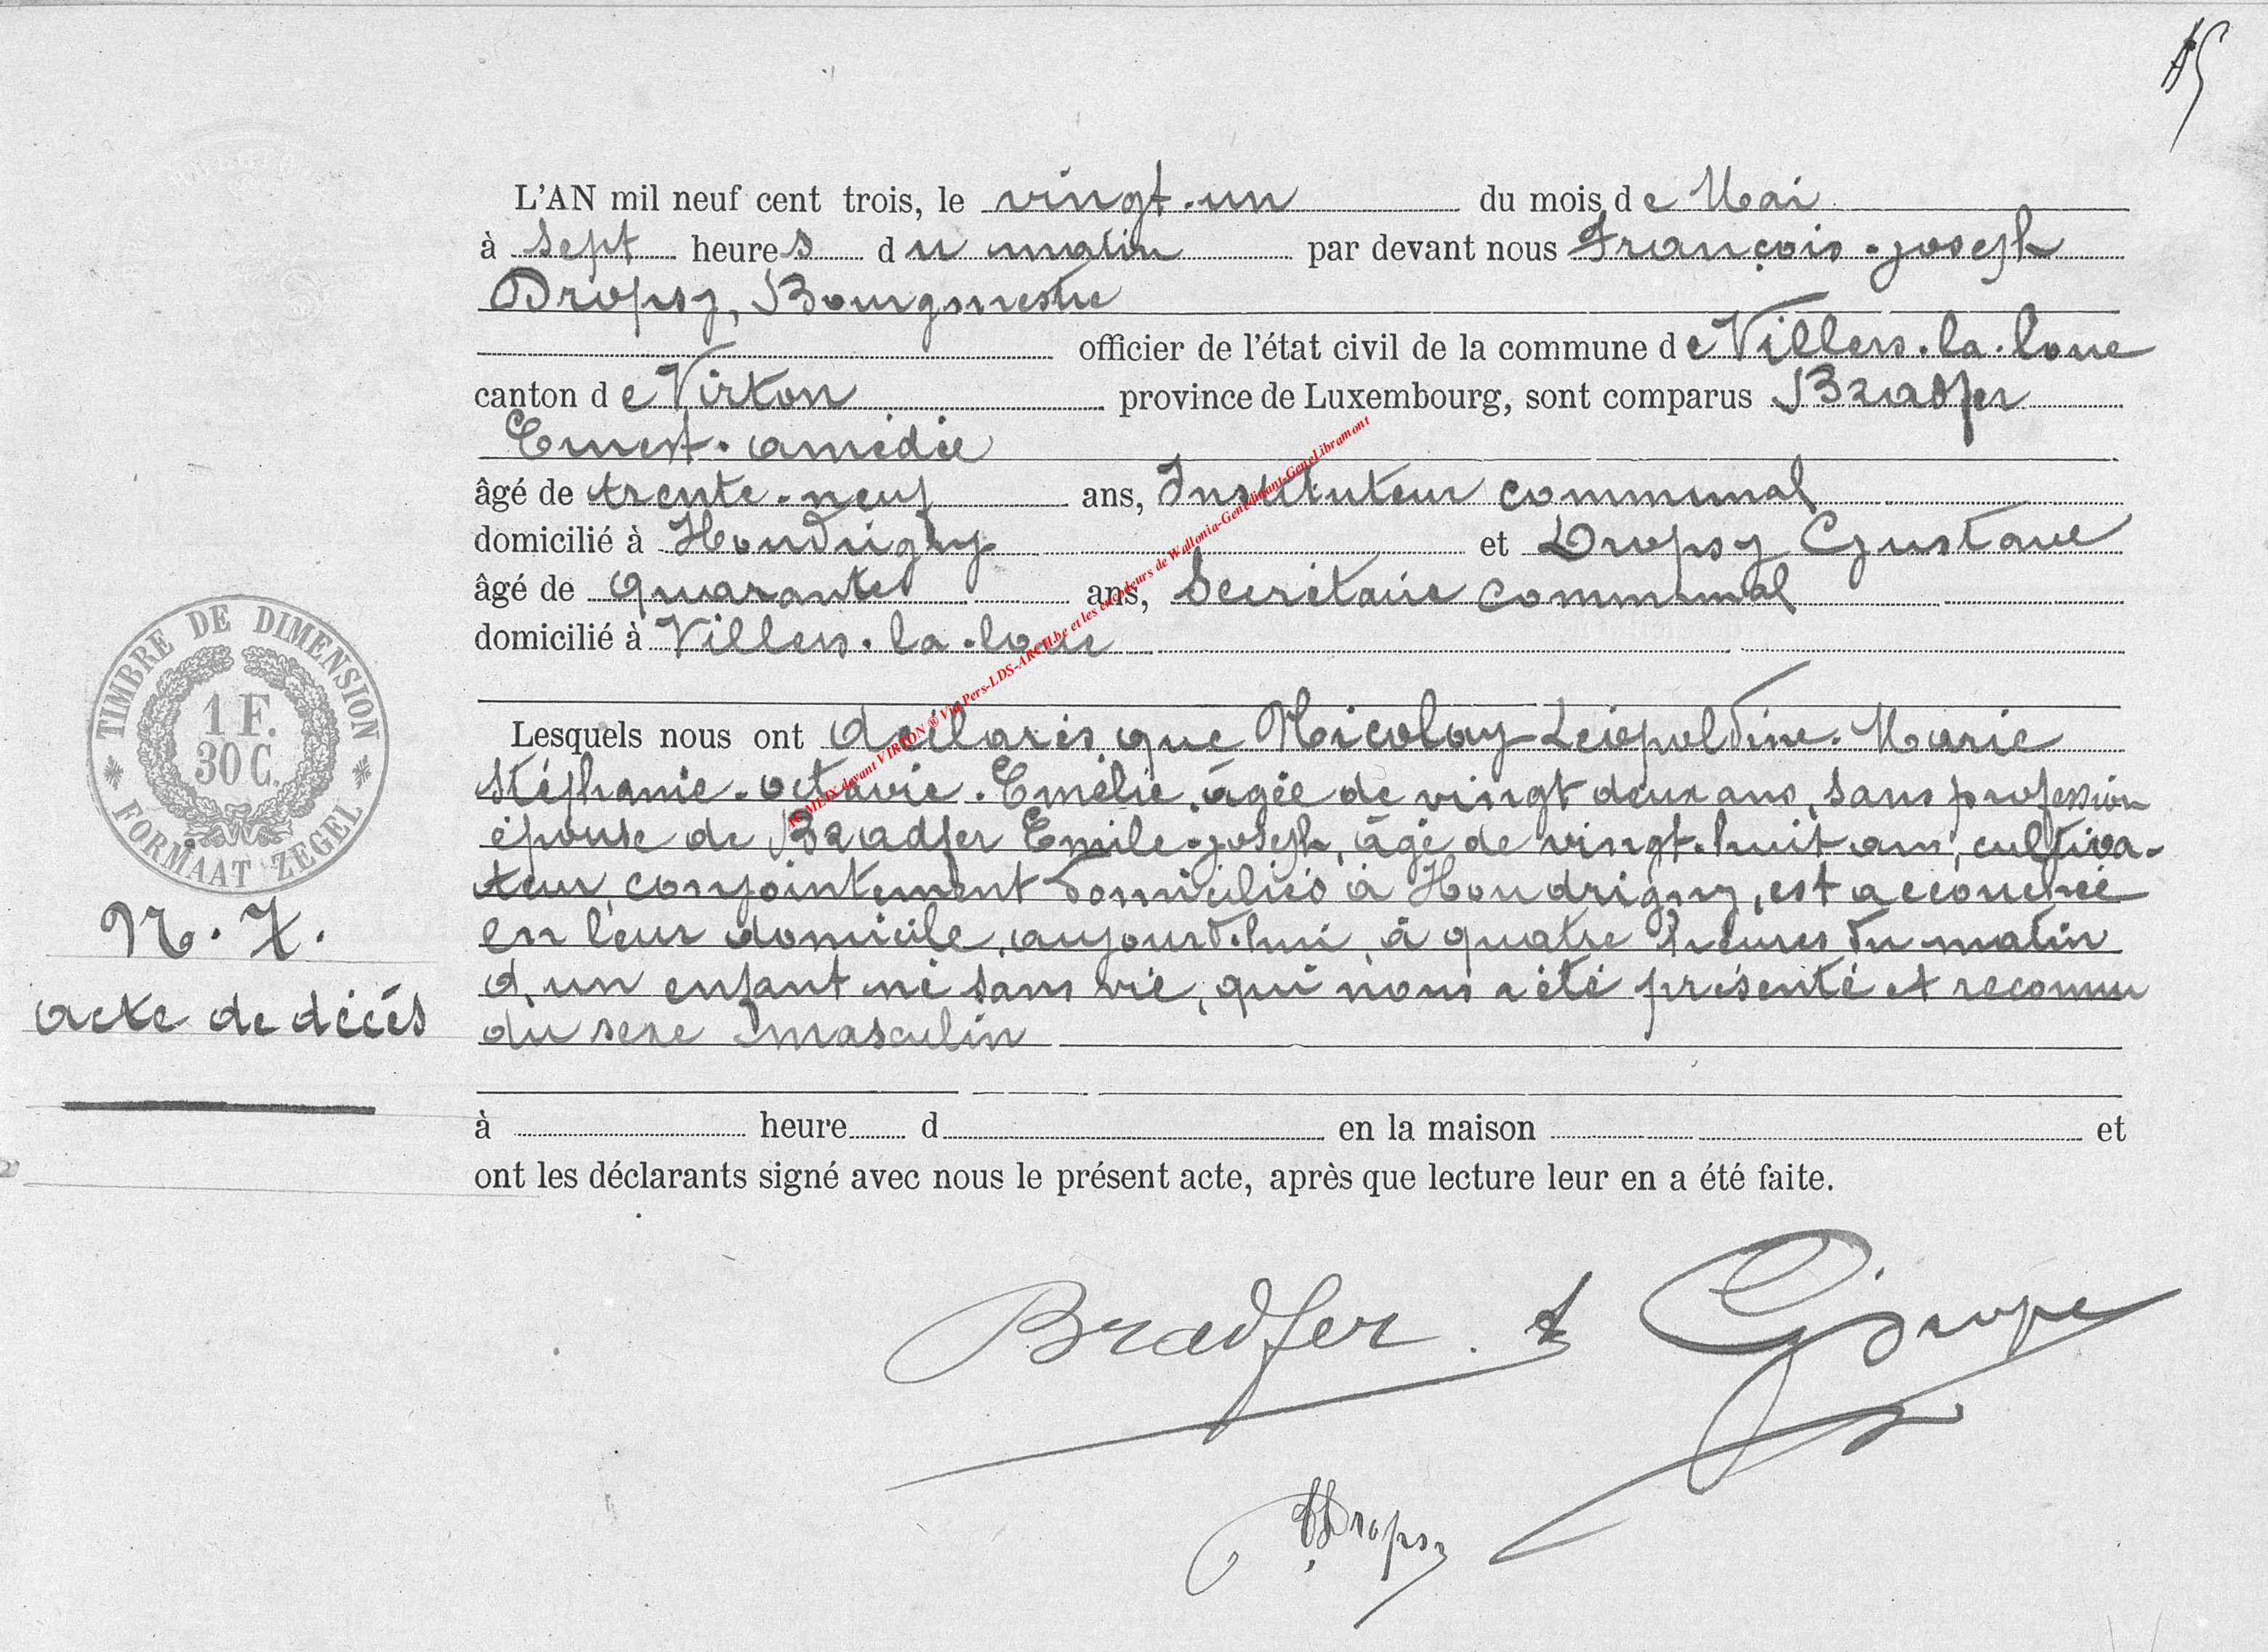 L'AN mil neuf cent trois, le vingt-un du mois de Mai
à sept heures du matin par devant nous François-Joseph
Dropsy, Bourgmestre
officier de l'état civil de la commune de Villers-la-loue
canton de Virton province de Luxembourg, sont comparus Bradfer
Ernest-amédée
âgé de trente-neuf ans, Instituteur communal
domicilié à Houdrigny et Dropsy Gustave
âgé de quarante ans, Secrétaire communal
domicilié à Villers-la-loue
Lesquels nous ont déclarés que Nicolay Léopoldine-Marie
Stéphanie-octavie-Emélie, âgée de vingt deux ans, sans profession
épouse de Bradfer Emile-Joseph, âgé de vingt-huit ans, cultiva-
teur, conjointement domiciliés à Houdrigny, est accouchée
en leur domicile, aujourd'hui, à quatre heures du matin
d'un enfant né sans vie, qui nous a été présenté et reconnu
du sexe masculin
à heure d en la maison et
ont les déclarants signé avec nous le présent acte, après que lecture leur en a été faite.
TIMBRE DE DIMENSION
1 F.
30 C.
FORMAAT ZEGEL
N. 7.
acte de décès
Bradfer
Dropsy
MEIX devant VIRTON ® Via Pers-LDS-ARCH.be et les encodeurs de Wallonia-Genedinant-GeneLibramont